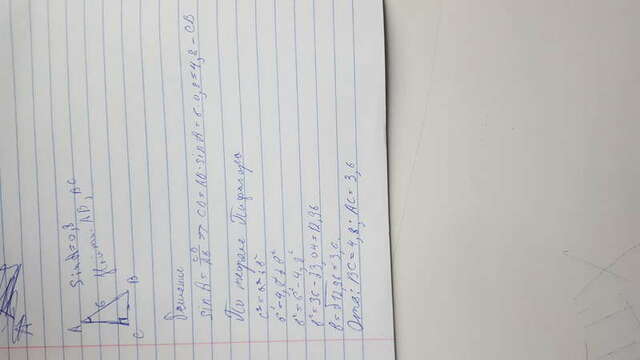 A
sin A = 0,8
6
Найти: AB, BC
C
B
Решение
sin A = CB/AB => CB = AB · sin A = 6 · 0,8 = 4,8 – CB
По теореме Пифагора
c² = a² + b²
6² = 4,8² + b²
b² = 6² – 4,8²
b² = 36 – 23,04 = 12,96
b = √12,96 = 3,6.
Отв: BC = 4,8; AC = 3,6